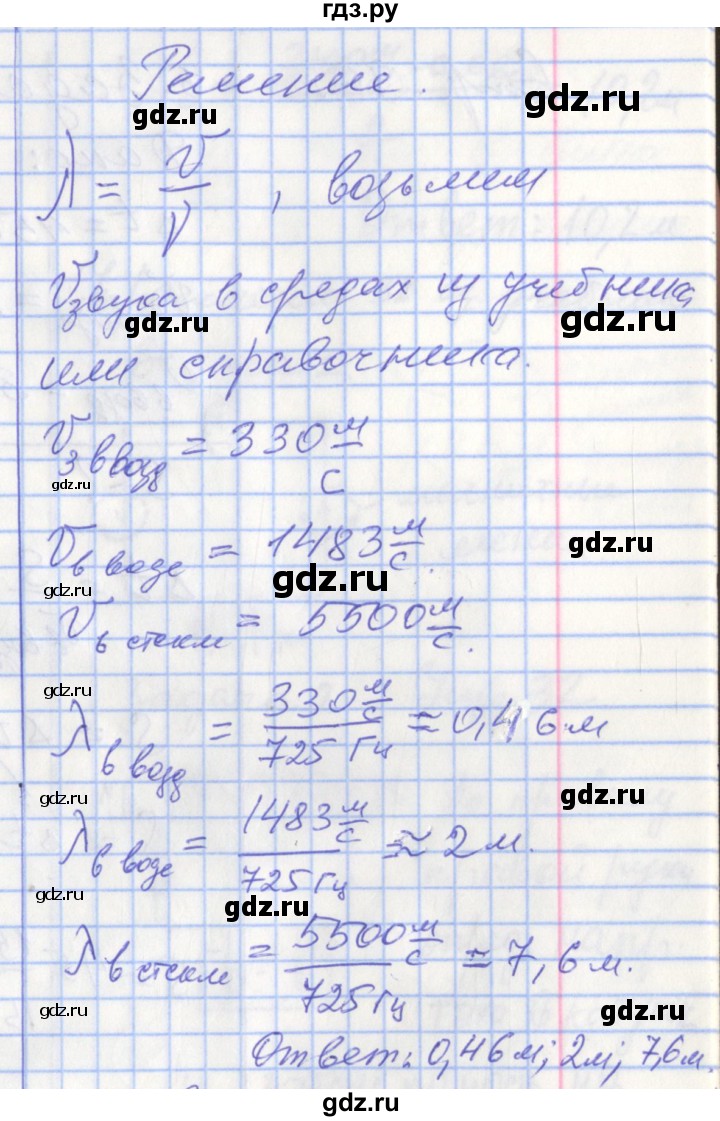 гдз.ру
Решение.
gdz.ru
gdz.ru
λ = v/ν, возьмем
vзвука в средах из учебника
gdz.ru
gdz.ru
или справочника.
vз в возд = 330 м/с
gdz.ru
vв воде = 1483 м/с.
gdz.ru
gdz.ru
gdz.ru
vв стекле = 5500 м/с.
gdz.ru
λв возд = 330 м/с / 725 Гц ≈ 0,46 м
gdz.ru
gdz.ru
λв воде = 1483 м/с / 725 Гц ≈ 2 м.
gdz.ru
gdz.ru
λв стекле = 5500 м/с / 725 Гц = 7,6 м.
gdz.ru
gdz.ru
Ответ: 0,46 м; 2 м; 7,6 м.
gdz.ru
gdz.ru